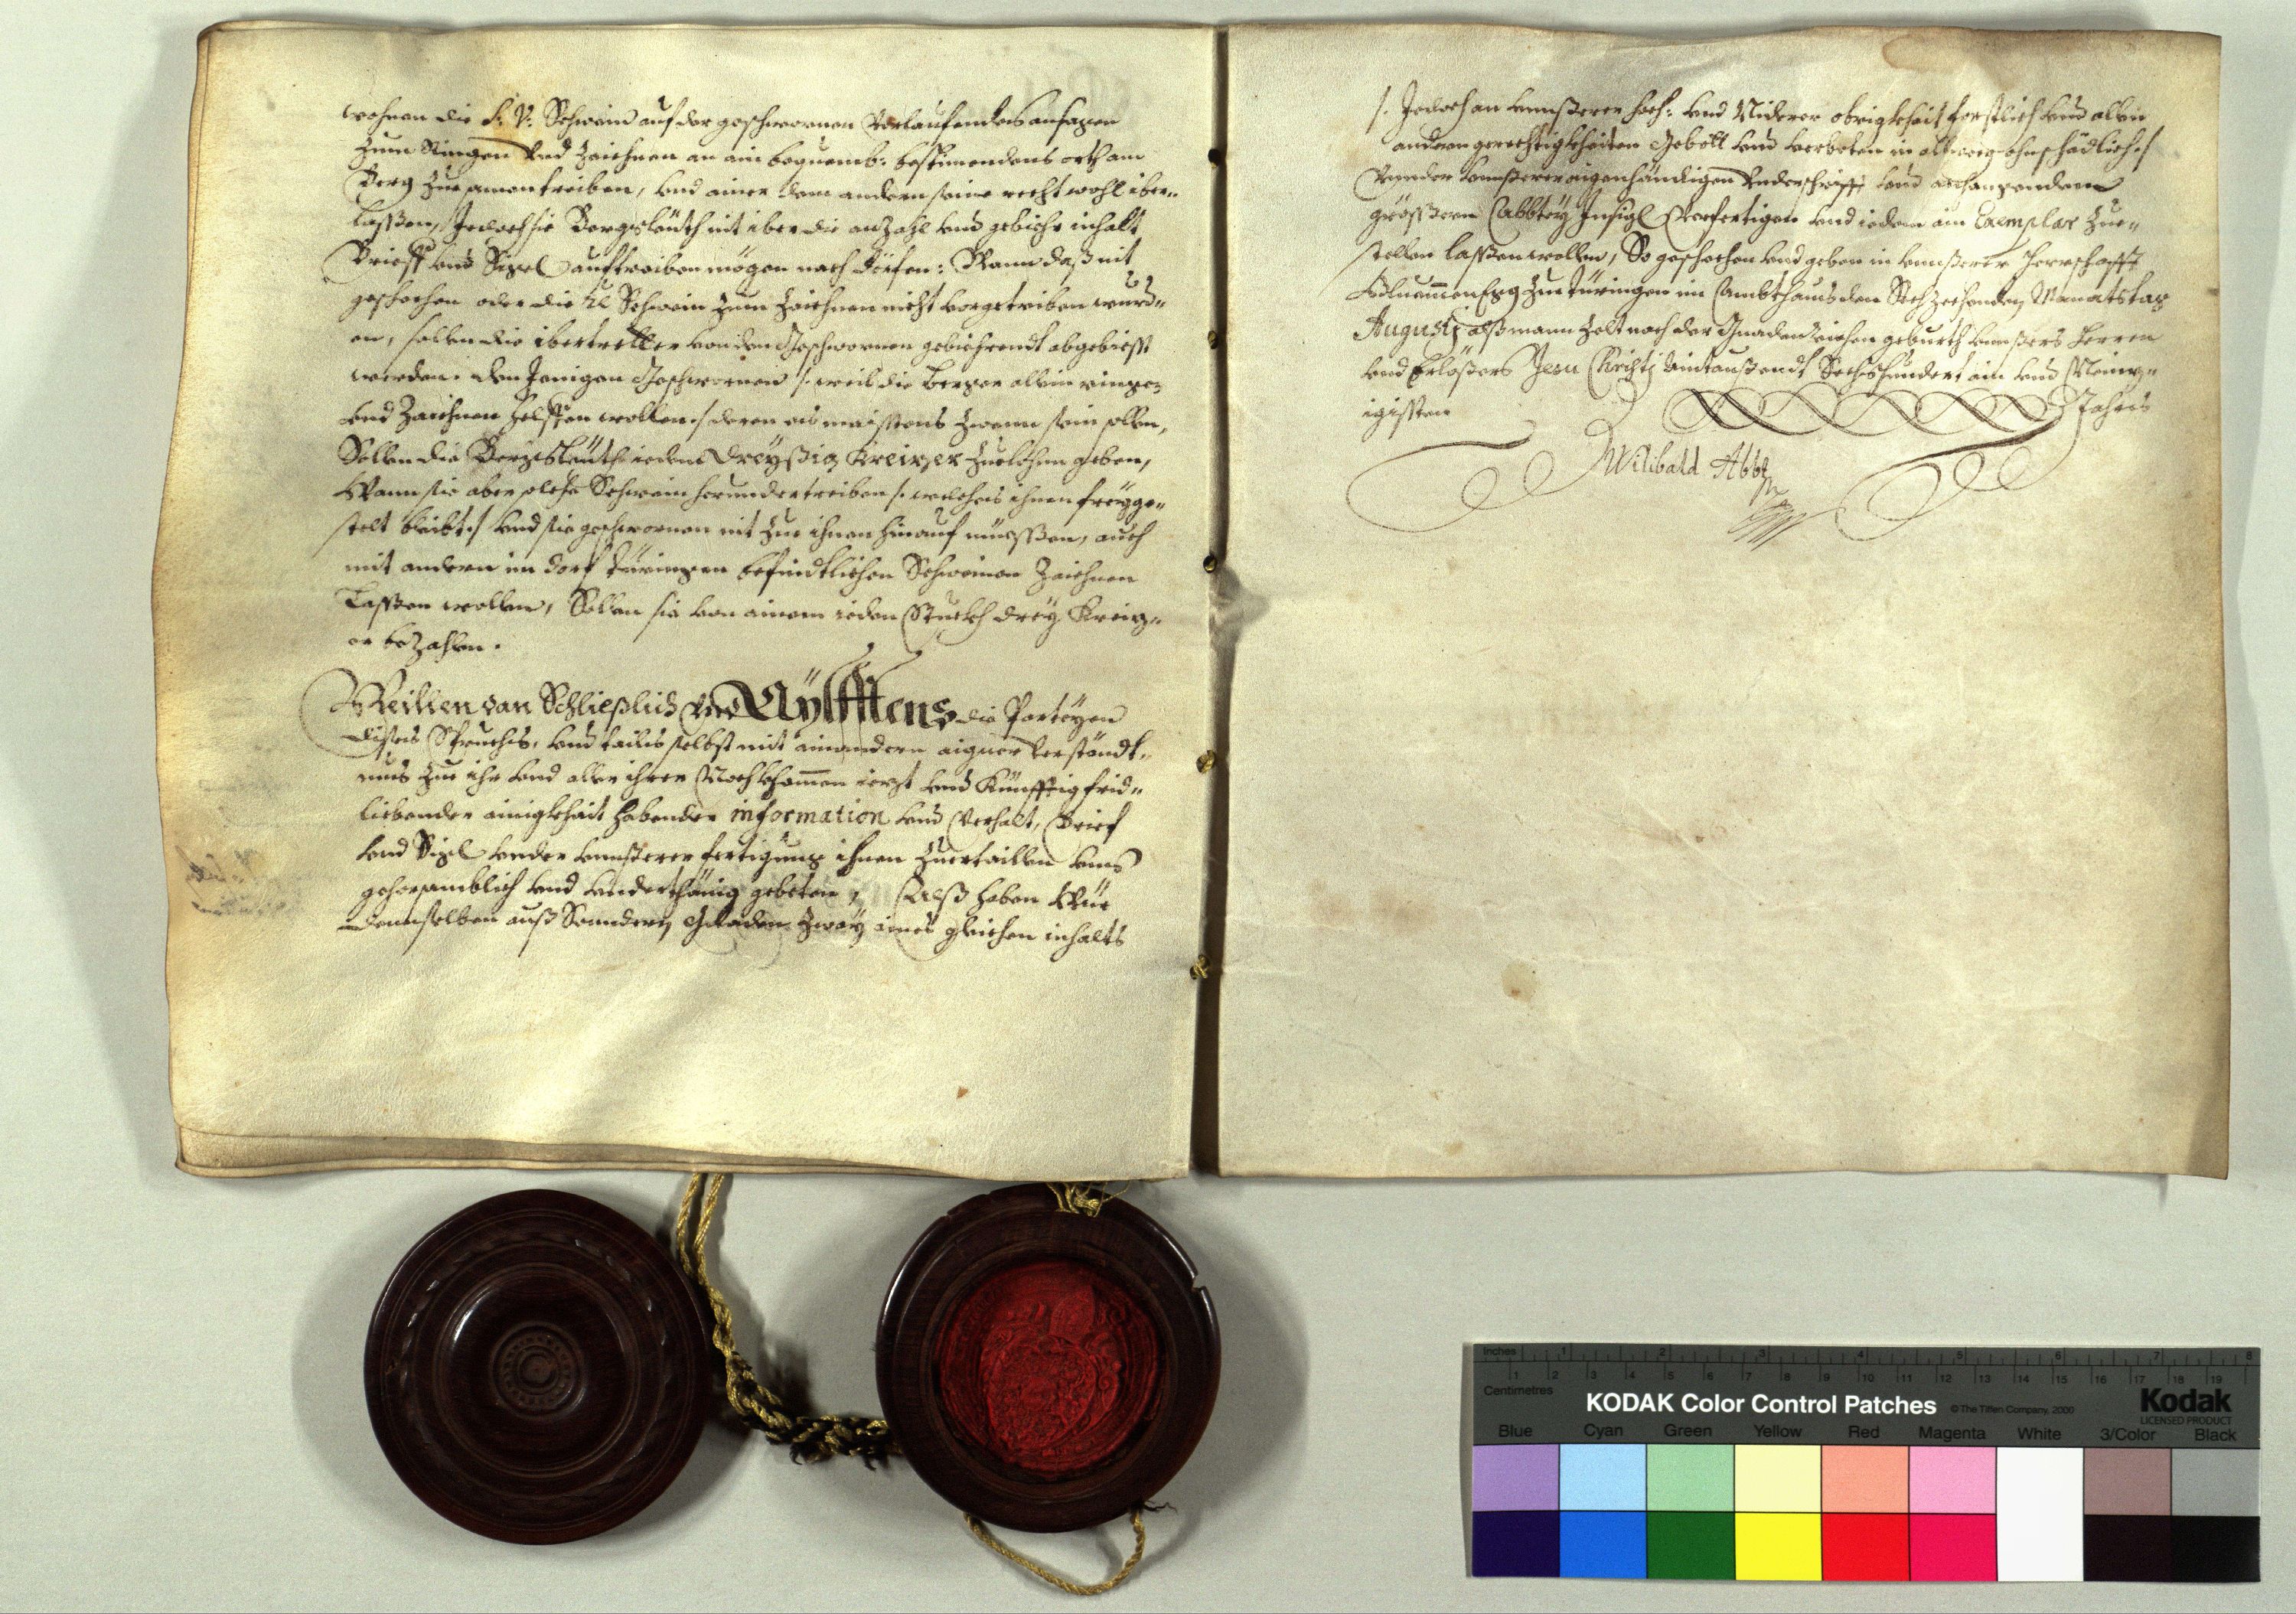 wohnen die S: V: Schwein auf der geschwornen verlaufendes ansagen
zum Ringen vnd Zaichnen an ain bequemb: bestimendens orth am
Berg zue samen treiben, vnd ainer dem andern seine recht wohl iber-
lassen, Jedoch sie Bergsleüth nit iber die anzahl vnd gebiehr inhalt
Brieff vnd Sigel auftreiben mögen noch dörfen: Wann daß nit
geschechen oder die Schwein zum Zaichnen nicht vorgetriben wurd-
en, sollen die ibertretter von den Geschwornen gebiehrendt abgebiesst
werden. den Jenigen Geschwornen /: weil die Berger allein ringen
vnd Zaichnen helffen wollen :/ deren als maistens zween sein sollen,
Sollen die Bergsleüth iedem dreyßig Kreizer zue lohn geben,
Wann sie aber solche Schwein herunder treiben /: welches ihnen freyge-
stelt bleibt :/ vnd sie geschwornen nit zue ihnen hinauf müessen, auch
mit andern im dorf Türingen befindtlichen Schweinen Zaichnen
lassen wollen, Sollen sie von ainem ieden Stuckh drey Kreiz-
er bezahlen.
Weillen dan Schließlich vnd Aylfftens die Parteyen
dises Spruchs, vnd tails selbst mit ainandern aigner verständt-
nus zue ihr vnd aller ihrer Nachkhomen iezt vnd Künfftig frid-
liebender ainigkhait habender information vnd Verhalt, Brief
vnd Sigel vnder vnnserer fertigung ihnen zue ertaillen vns
gehorsamblich vnd vnderthänig gebeten, Alß haben Wür
demselben auß Sondern Gnaden zway aines gleichen inhalts
/: Jedoch an vnnserer hoch: vnd Niderer obrigkheit forstlich vnd allen
andern gerechtigkheiten Gebott vnd verboten in allweeg ohnschädlich :/
Vnder vnnserer aigenhändigen Vnderschrifft vnd anhangendem
grösseren Abbtey Insigl Verfertigen vnd iedem ain Exemplar Zue-
stellen lassen wollen, So geschechen vnd geben in vnnserer Herrschafft
Bluemenegg zue Türingen im Ambthaus den Sechzechenden Monatstag
Augusti alß mann zelt nach der Gnadenreichen geburth vnnsers Herren
vnd Erlösers Jesu Christi Aintausendt Sechshundert ain vnd Neinz-
igisten Jahrs
Wilibald Abbt
Inches
Centimetres
KODAK Color Control Patches © The Tiffen Company, 2000 Kodak
LICENSED PRODUCT
Blue Cyan Green Yellow Red Magenta White 3/Color Black